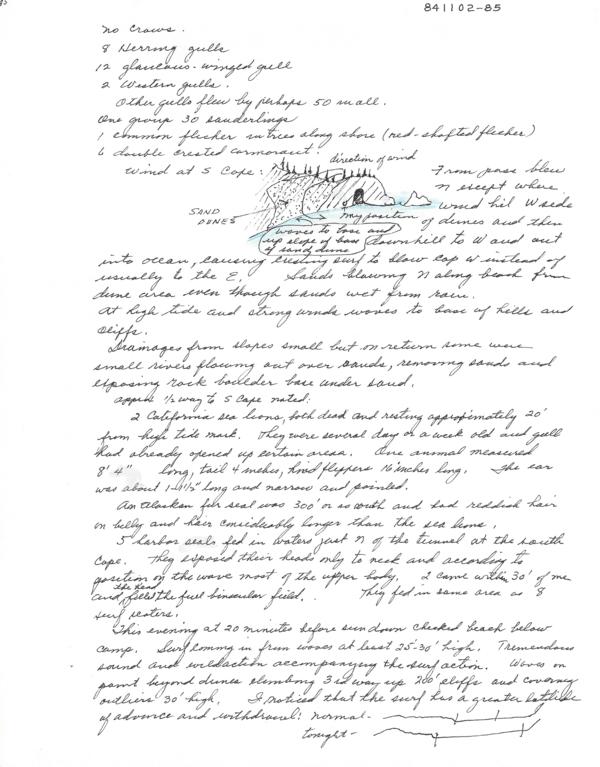 841102-85
no crows.
8 Herring gulls
12 glaucous-winged gull
2 Western gulls.
Other gulls flew by perhaps 50 in all.
One group 30 sanderlings
1 common flicker in trees along shore (red-shafted flicker)
6 double crested cormorant.
direction of wind
Wind at S Cape:
From pass blew
N except where
wind hit W side
SAND
DUNES
my position
of dunes and then
waves to base and
up slope of base
of sand dune
downhill to W and out
into ocean, causing cresting surf to blow cap W instead of
usually to the E. Sands blowing N along beach from
dune area even though sands wet from rain.
At high tide and strong winds waves to base of hills and
cliffs.
Drainages from slopes small but on return some were
small rivers flowing out over sands, removing sands and
exposing rock boulder base under sand.
approx 1/2 way to S Cape noted:
2 California sea lions, both dead and resting approximately 20'
from high tide mark. They were several day or a week old and gull
had already opened up certain areas. One animal measured
8' 4" long, tail 4 inches, hind flippers 16 inches long. The ear
was about long and narrow and pointed.
An Alaskan fur seal was 300' or so north and had reddish hair
on belly and hair considerably longer than the sea lions.
5 harbor seals fed in waters just N of the tunnel at the south
Cape. They exposed their heads only to neck and according to
position on the wave most of the upper body. 2 came within 30' of me
and the head filled the full binocular field. They fed in same area as 8
surf scoters.
This evening at 20 minutes before sundown checked beach below
camp. Surf coming in from waves at least 25-30' high. Tremendous
sound and wild action accompanying the surf action. Waves on
point beyond dunes climbing 3rd way up 200' cliffs and covering
outliers 30' high. I noticed that the surf has a greater latitude
of advance and withdrawal: normal -
tonight -